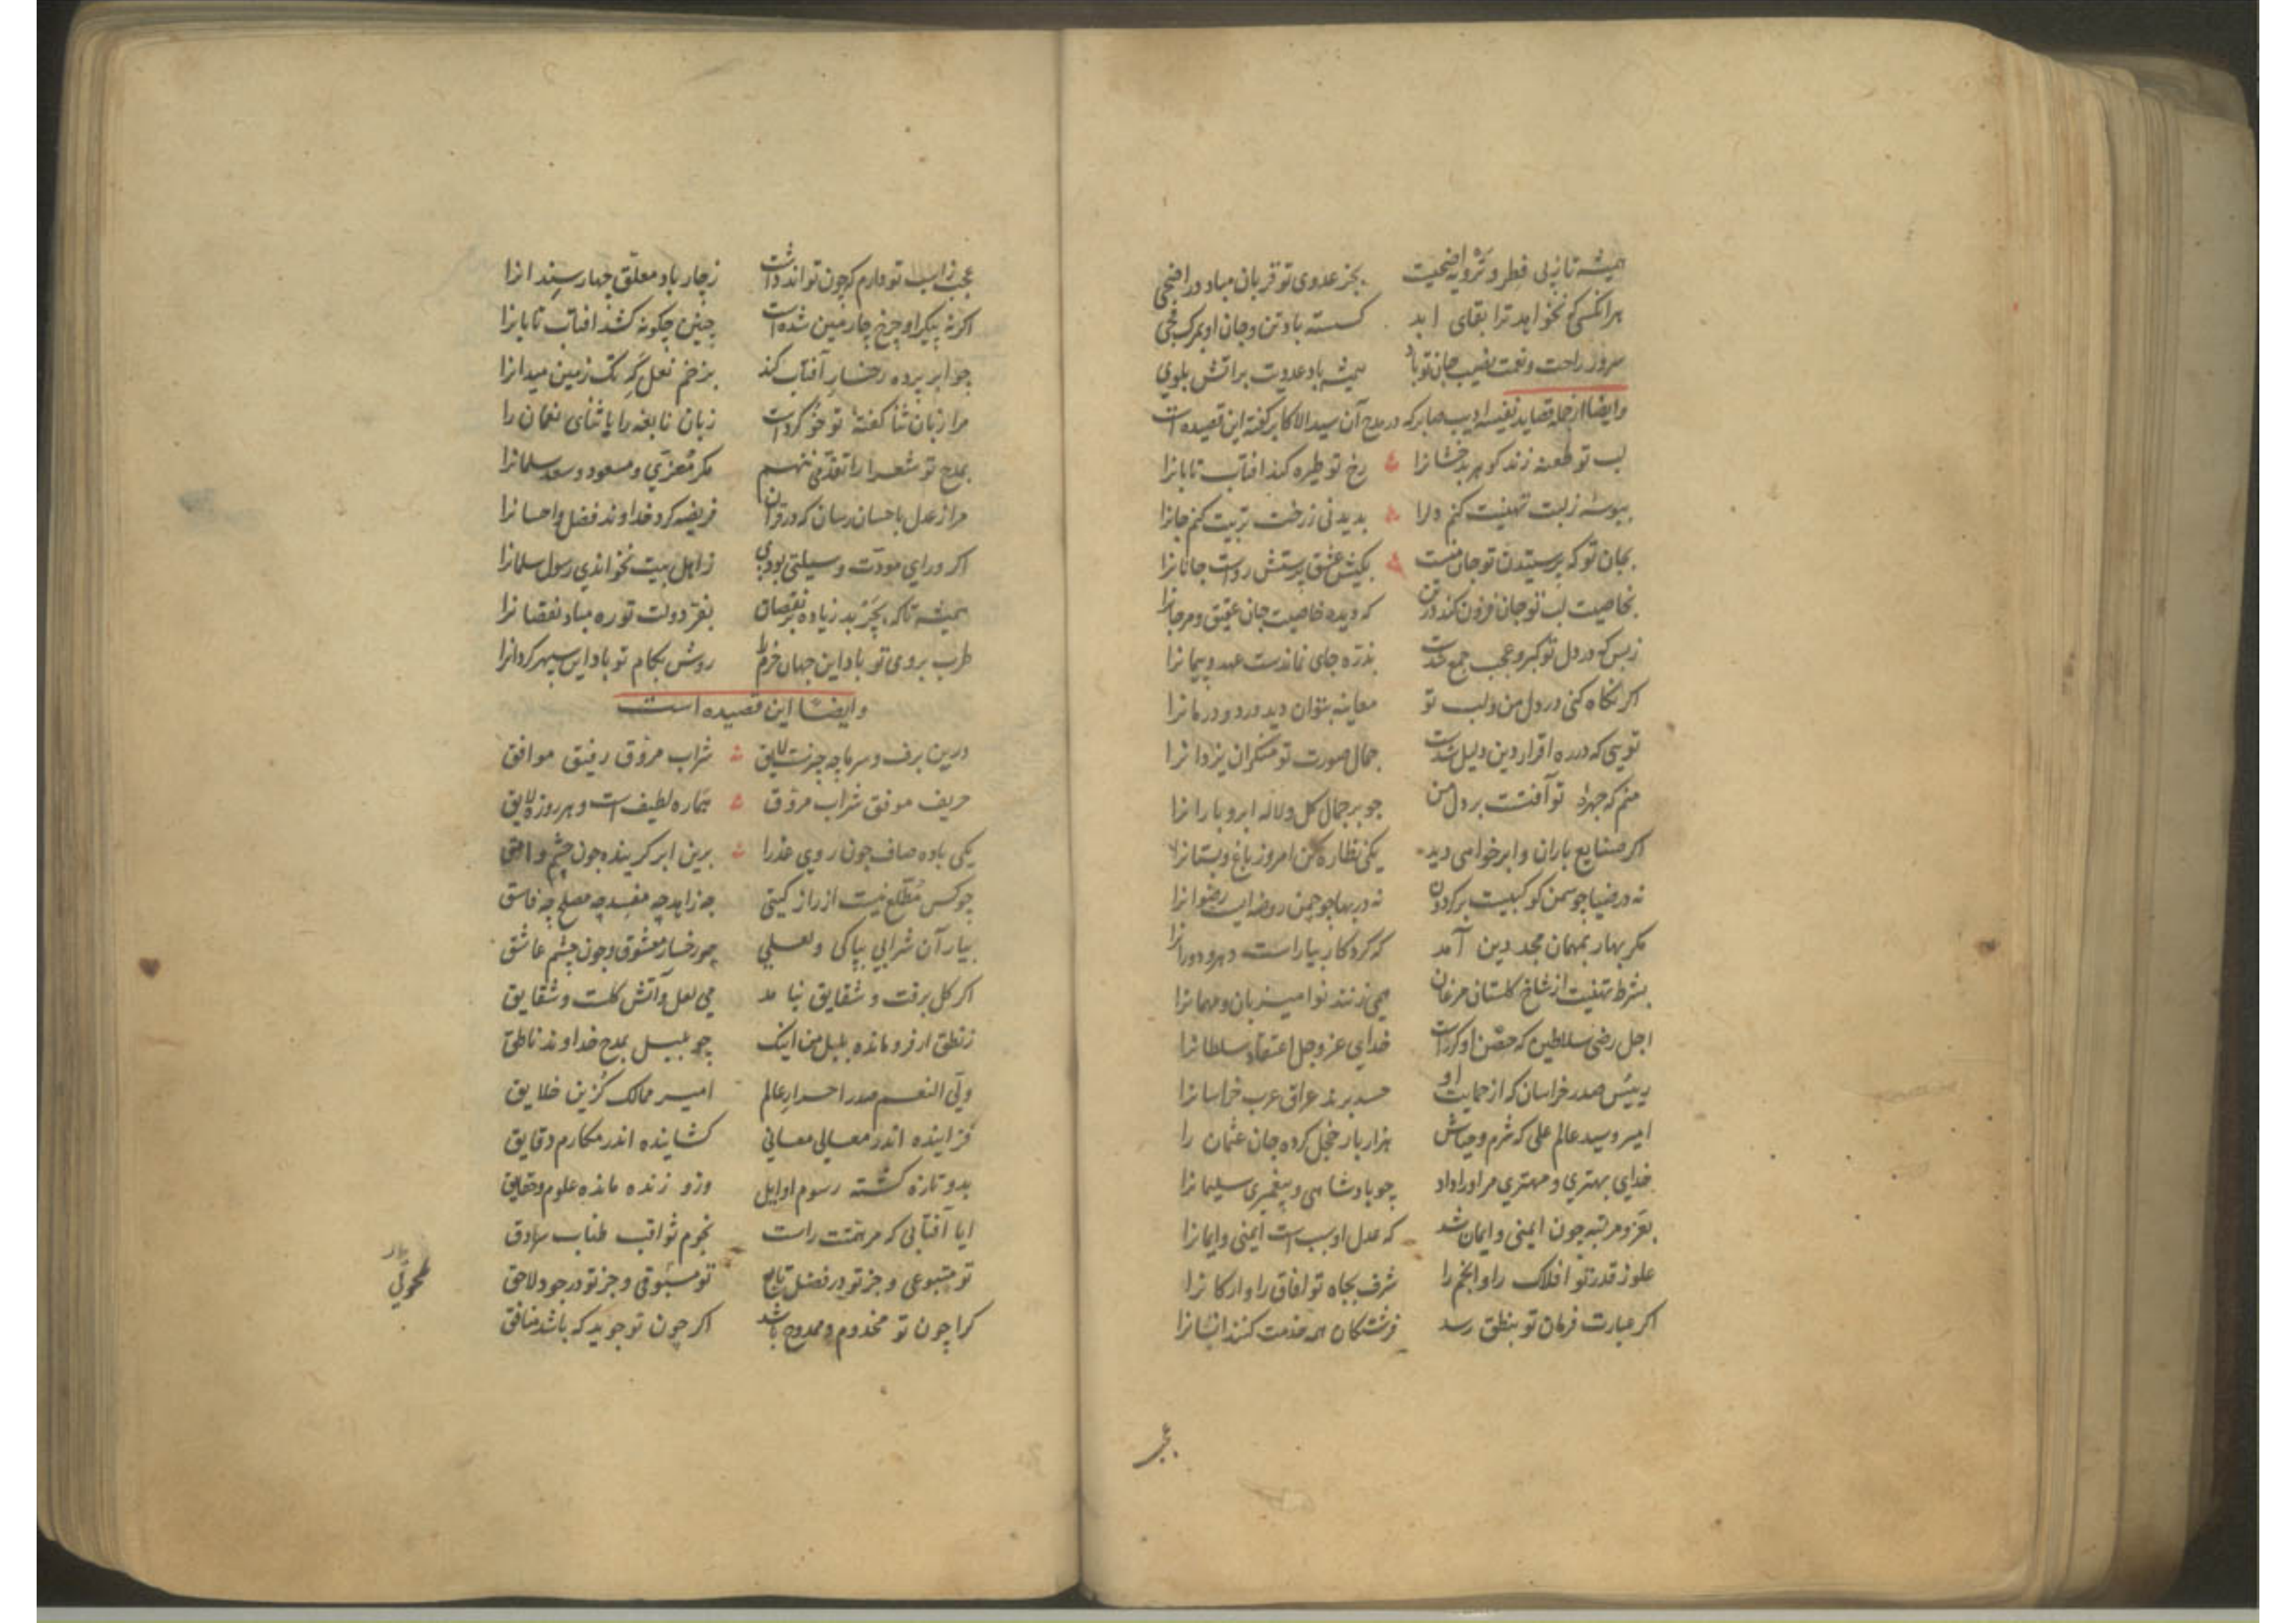 همیشه تا ز پی فطر و ترویه اضحیست بجز عدوی تو قربان مباد در اضحی
هر آنکسی که نخواهد ترا بقای ابد کسسته باد تن و جان او بمرک فجی
سرور و راحت و نعمت نصیب جان تو باد همیشه باد عدویت بر اتش بلوی
وایضا از جمله قصاید نفیسه ادیب صابر که در مدح آن سید الاکابر کفته این قصیده است
لب تو طعنه زند کوهر بدخشانرا رخ تو طیره کند افتاب تابانرا
ببوسه ز لبت تهنیت کنم دلرا بدیدنی ز رخت تربیت کنم جانرا
بجان تو که پرستیدن تو جان منست بکیش عشق پرستش رواست جانانرا
بخاصیت لب تو جان فزون کند در تن که دیده خاصیت جان عقیق و مرجانرا
ز بس که در دل تو کبر و عجب جمع شدست بذره جای نماندست عهد و پیمانرا
اکر نکاه کنی در دل من و لب تو معاینه بتوان دید درد و درمانرا
تویی که در ره اقرار دین دلیل شدست جمال صورت تو منکران یزدانرا
منم که چهره تو آفتست بر دل من جو بر جمال کل و لاله ابر و بارانرا
اکر صنایع باران و ابر خواهی دید یکی نظاره کن امروز باغ و بستانرا
نه در ضیا جو سمن کوکبیست بر کردون نه در بها جو چمن روضه ایست رضوانرا
مکر بهار بمهمان مجد دین آمد که کردکار بیاراست دهر و دورانرا
بشرط تهنیت از شاخ کلستان مرغان همی زنند نوا میزبان و مهمانرا
اجل رضی سلاطین که حصن او کردست خدای عز و جل اعتقاد سلطانرا
رییس صدر خراسان که از حمایت او حسد برند عراق عرب خراسانرا
امیر و سید عالم علی که شرم و حیاش هزار بار خجل کرده جان عثمان را
خدای بهتری و مهتری مر او را داد چو پادشاهی و پیغمبری سلیمانرا
بعز و مرتبه چون ایمنی و ایمان شد که عدل او سبب است ایمنی و ایمانرا
علو ز قدر تو افلاک را و انجم را شرف بجاه تو افاق را و ارکانرا
اکر عبارت فرمان تو بنطق رسد فرشتکان همه خدمت کنند انسانرا
عجب
عجب ز اسب تو دارم که چون تواند داشت ز چار باد معلق چهار سندانرا
اکر نه پیکر او چرخ چارمین شده است چنین چکونه کشد افتاب تابانرا
چو ابر پرده رخسار آفتاب کند بزخم نعل کرِ تک زمین میدانرا
مرا زبان ثنا کفتهٔ تو خو کردست زبان نابغه را با ثنای نعمان را
بمدح تو شعرا را تقدمی ننهم مکر معزی و مسعود و سعد سلمانرا
مرا ز عدل باحسان رسان که در قران فریضه کرد خداوند فضل و احسانرا
اکر ورای مودت وسیلتی بودی ز اهل بیت نخواندی رسول سلمانرا
همیشه تا که بجز بد زیاده نقصان بعز دولت تو ره مباد نقصانرا
طرب بروی تو باد این جهان خرم را روش بکام تو باد این سپهر کردانرا
وایضا این قصیده است
درین برف و سرما چه چیزست لایق شراب مروق رفیق موافق
حریف موفق شراب مروق هماره لطیف است و هر روزه لایق
یکی باده صاف چون روی عذرا برین ابر کرینده چون چشم وامق
چو کس مطلع نیست از راز کیتی چه زاهد چه مفسد چه مصلح چه فاسق
بیار آن شرابی بپاکی و لعلی چو رخسار معشوق و چون چشم عاشق
اکر کل برفت و شقایق نیامد می لعل و آتش کلست و شقایق
ز نطق ار فرو مانده بلبل من اینک چو بلبل بمدح خداوند ناطق
ولی النعم صدر احرار عالم امیر ممالک کزین خلایق
فزاینده اندر معالی معانی کشاینده اندر مکارم دقایق
بدو تازه کشته رسوم اوایل وزو زنده مانده علوم و حقایق
ایا آفتابی که مر همتت راست نجوم ثواقب طناب سرادق
تو متبوعی و جز تو در فضل تابع تو مسبوقی و جز تو در جود لاحق
کرا چون تو مخدوم و ممدوح باشد اکر چون تو جوید که باشد منافق